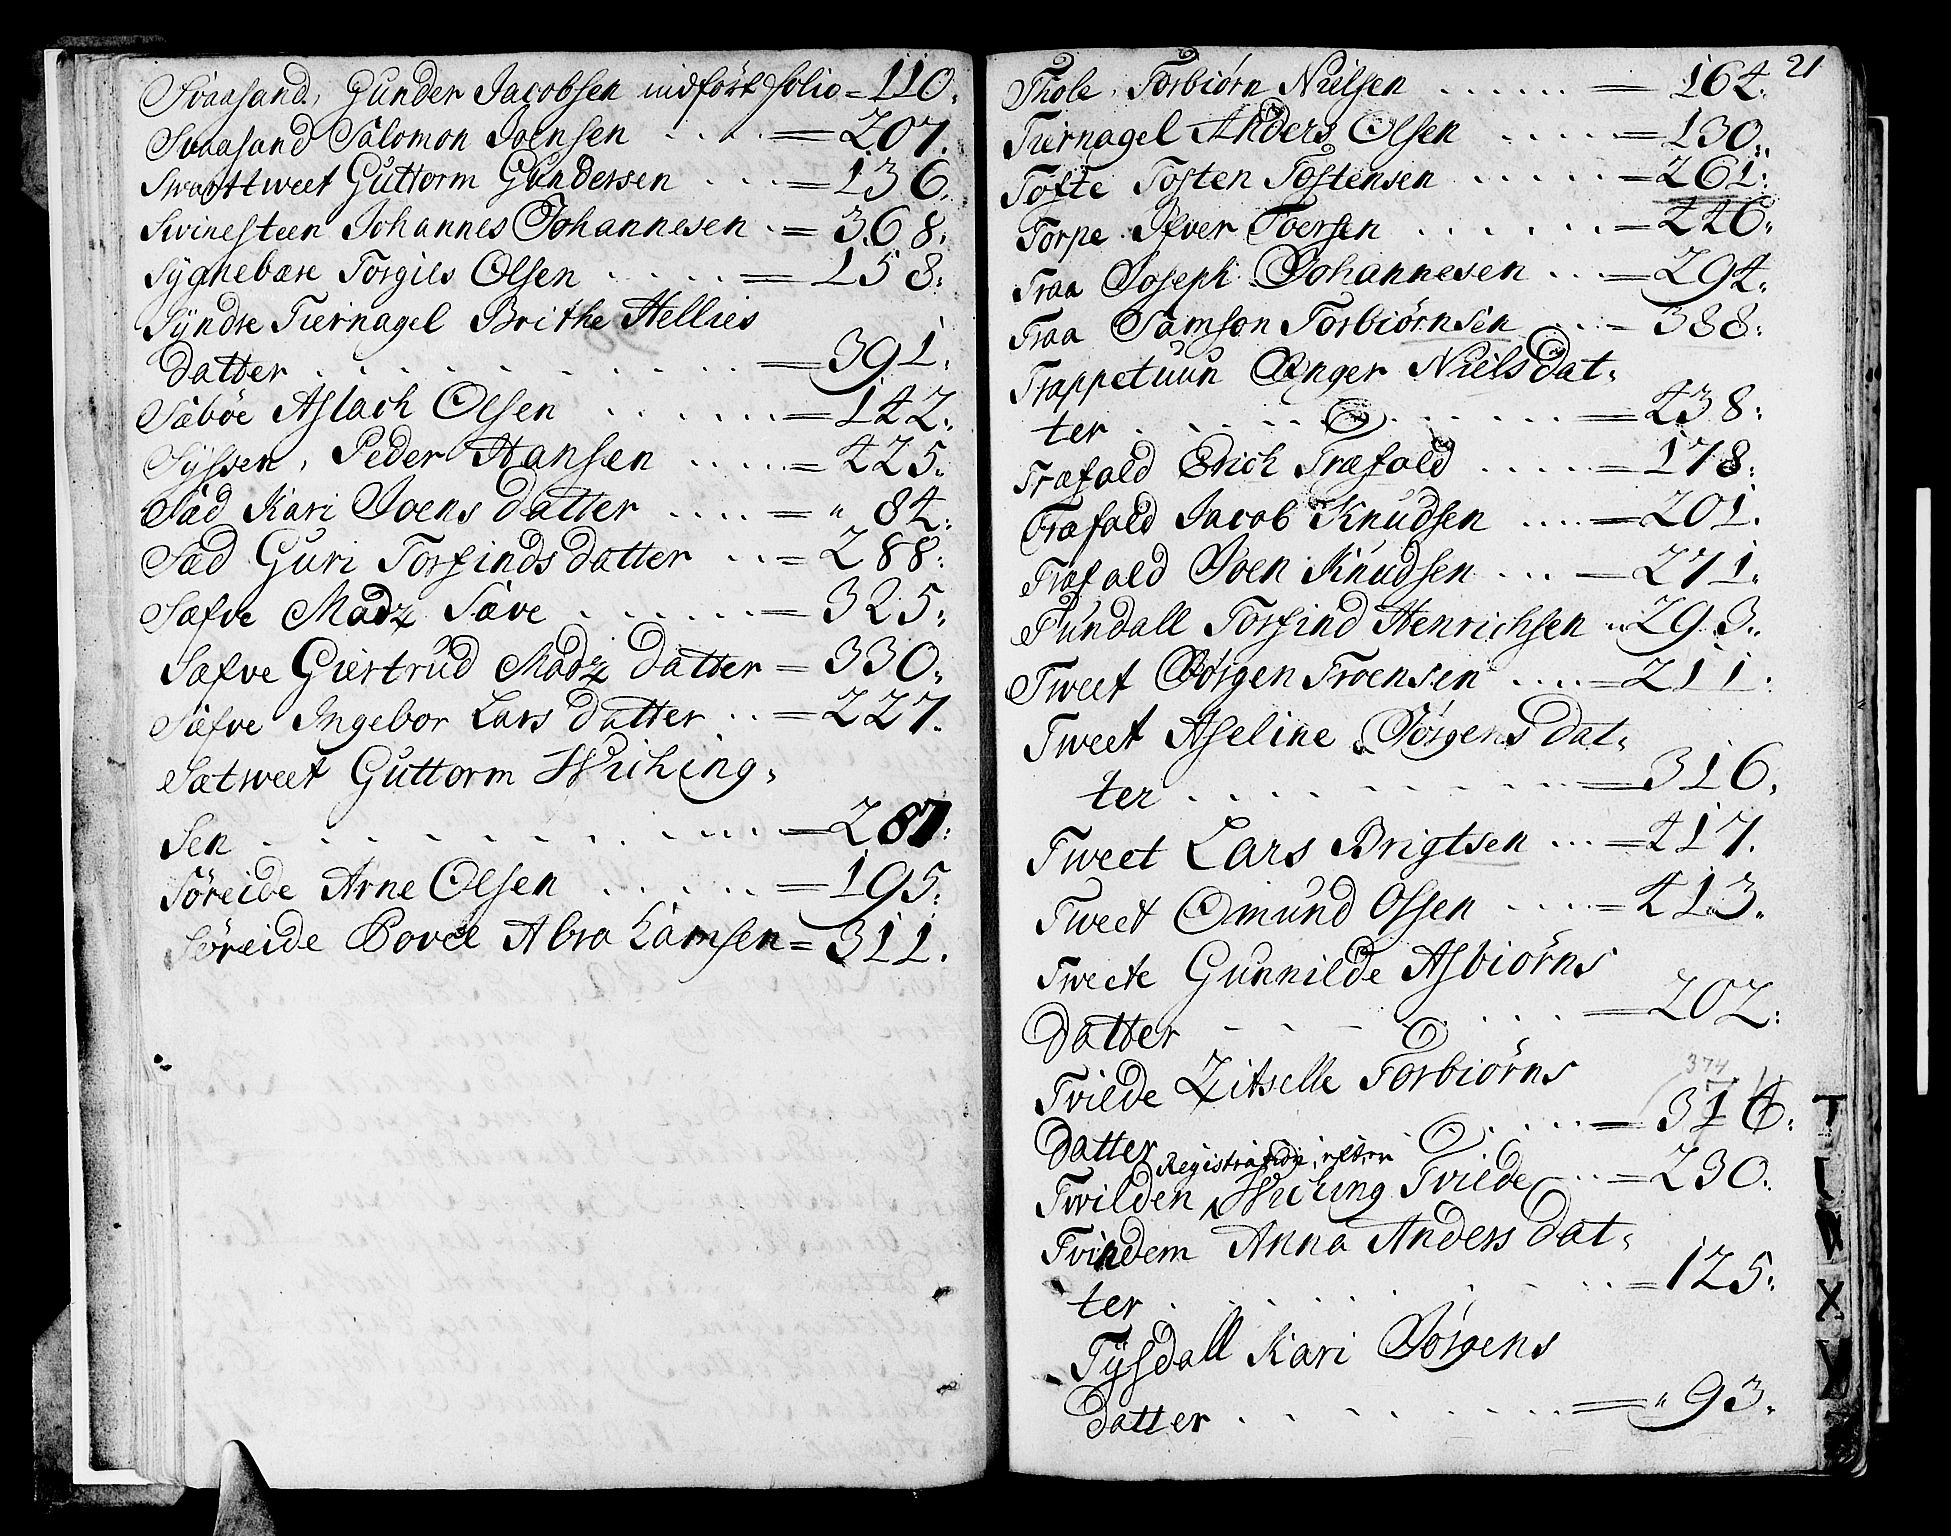 Svaasand, Gunder Jacobsen indført folio = 110.
Svaasand Salomon Joensen . . . . = 207.
Swarttweet Guttorm Gundersen . . . = 136.
Svinesteen Johannes Johannesen . = 368.
Sygnebære Torgils Olsen . . . . . = 158.
Syndre Tiernagel Brithe Hellies
datter . . . . . . . . . . = 391.
Sæbøe Aslach Olsen . . . . . . = 142.
Syssen, Peder Hansen . . . . . = 425.
Sæd Kari Joens datter . . . . = " 84.
Sæd Guri Torfinds datter . . = 288.
Sæfve Madz Sæve . . . . . . = 325.
Sæfve Giertrud Madz datter = 330.
Sæfve Ingebor Lars datter . . = 227.
Sætweet Guttorm Wiching-
sen . . . . . . . . . . . = 287.
Søreide Arne Olsen . . . . . . = 195.
Søreide Povel Abrahamsen = 311.
21
Thole, Torbiørn Nielsen . . . . . . = 164.
Tiernagel Anders Olsen . . . . . = 130.
Tofte Tosten Tostensen . . . . . . = 261.
Torpe Ifver Toersen . . . . . . . = 226.
Traa Joseph Johannesen . . . = 294.
Traa Samson Torbiørnsen . . . = 388.
Trappetuun Anger Niels dat-
ter . . . . . . . . . . . = 438.
Træfald Erich Træfald . . . . . = 178.
Træfald Jacob Knudsen . . . . = 201.
Træfald Joen Knudsen . . . = 271.
Tundall Torfind Henrichsen . . 293.
Tweet Jørgen Troensen . . . . = 211.
Tweet Aseline Jørgens dat-
ter . . . . . . . . . . . = 316.
Tweet Lars Brigtsen . . . = 417.
Tweet Omund Ossen . . . . = 413.
Tweete Gunnilde Asbiørns
datter . . . . . . . . . = 202.
Tvilde Zitselle Torbiørns
374
datter . . . . . = 314.
Registrering efter
Twilden Wiching Tvilde . . = 230.
Tvindem Anna Anders dat-
ter . . . . . . . . . . = 125.
Tysdall Kari Jørgens
datter . . . . . . . . . . = " 93.
T
U
W
X
Y